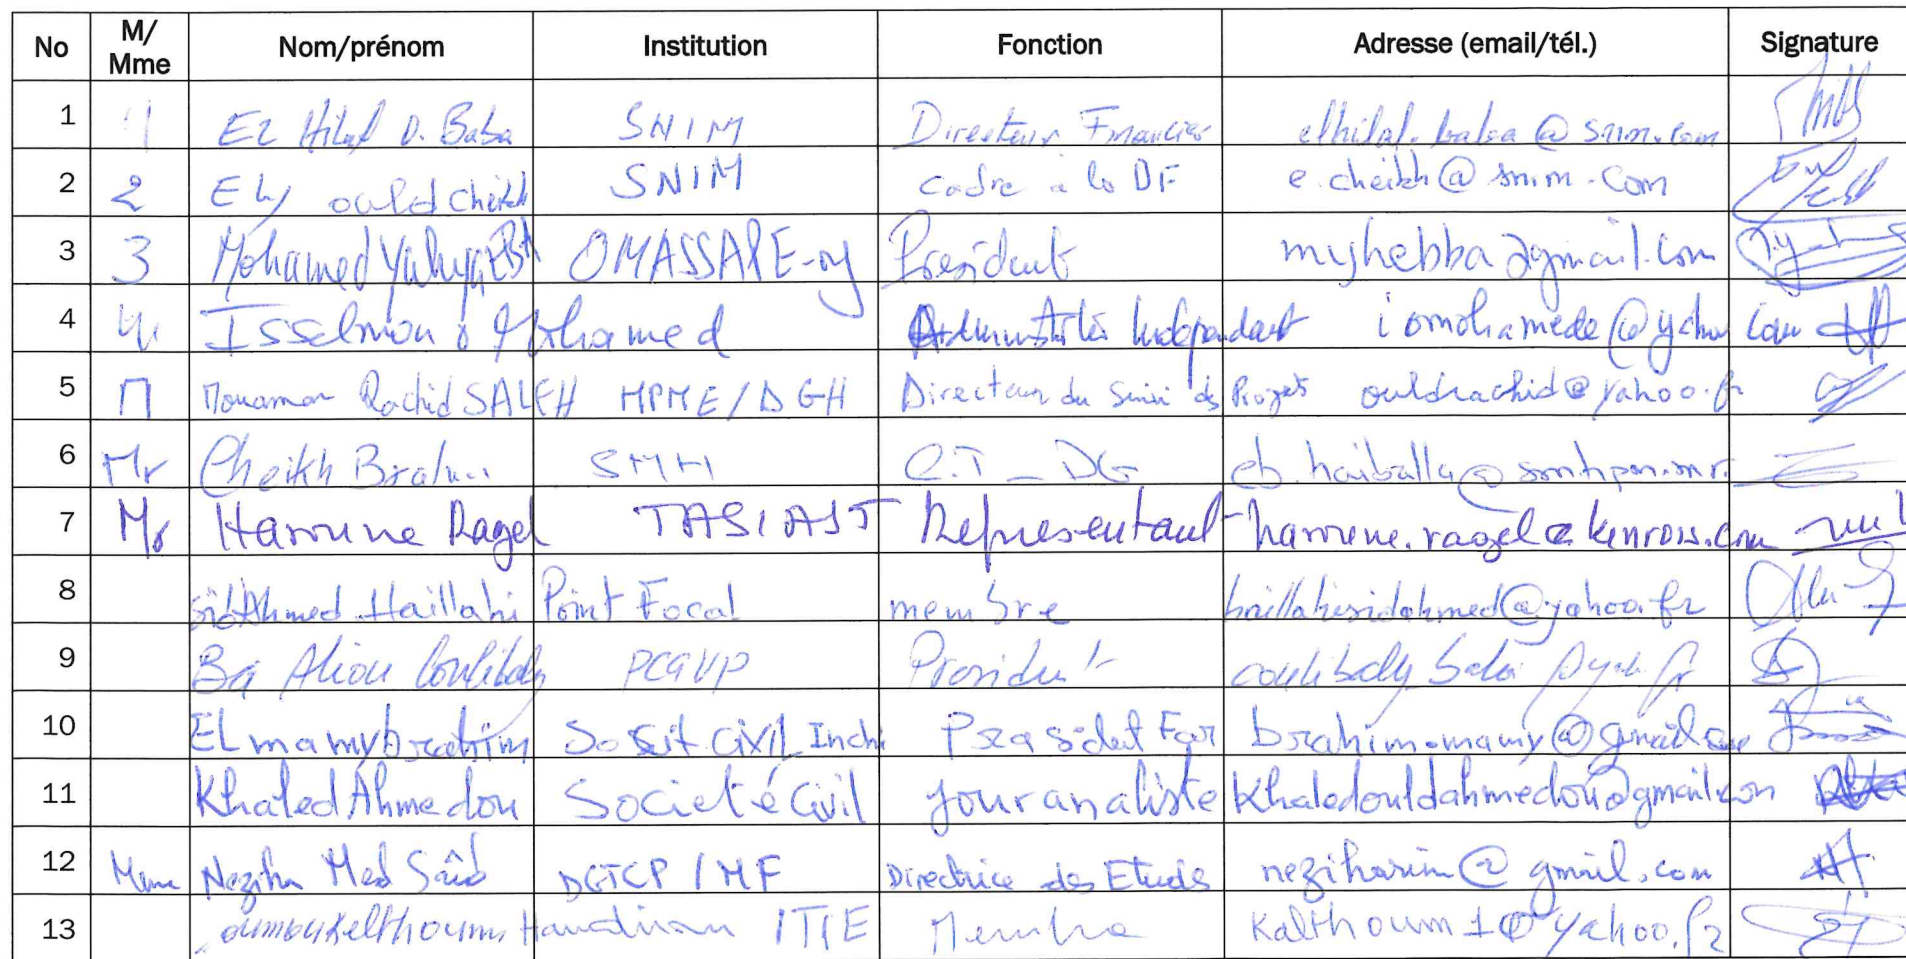 No M/Mme Nom/prénom Institution Fonction Adresse (email/tél.) Signature
1 Ez Hilal O. Baba SNIM Directeur Financier elhilal.baba@snim.com
2 2 Ely ould cheikh SNIM cadre à la DF e.cheikh@snim.com
3 3 Mohamed Yahya OMASSAPE President myhebba@gmail.com
4 Isselmou o Mohamed Independant iomohamede@yahoo com
5 M Rachid SALEH MPME/DGH Directeur du Suivi des Projets ouldrachid@yahoo.fr
6 Mr Cheikh SMH C.T_DG
7 Mr Harouna Ragel TASIAST Representant
8 Ahmed Haillahi Point Focal membre haillahisidahmed@yahoo.fr
9 Ba Aliou Coulibaly President coulibaly
10 EL mamy brahim Civil Inchi brahim.mamy@gmail
11 Khaled Ahmedou Societé Civil Jouranaliste Khaledouldahmedou@gmail.com
12 Mme Neziha Med Saïd DGTCP/MF Directrice des Etudes neziharim@gmail.com
13 ITIE Membre Kalthoum1@yahoo.fr